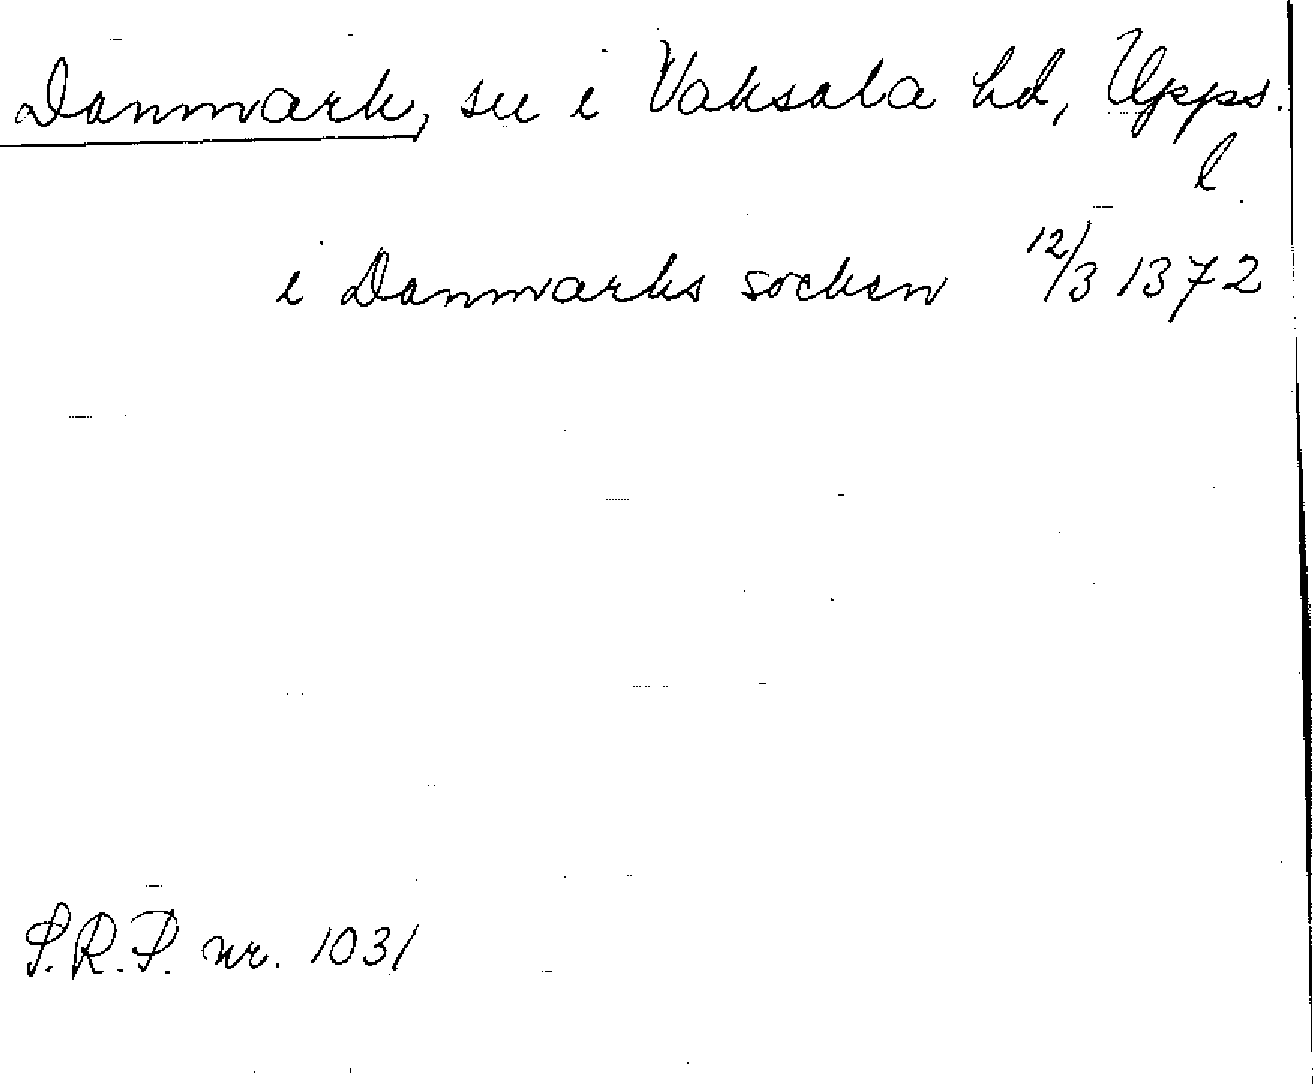 Danmark, sn i Vaksala hd, Upps.
l.
i Danmarks socken 12/3 1372
S.R.P. nr. 1031